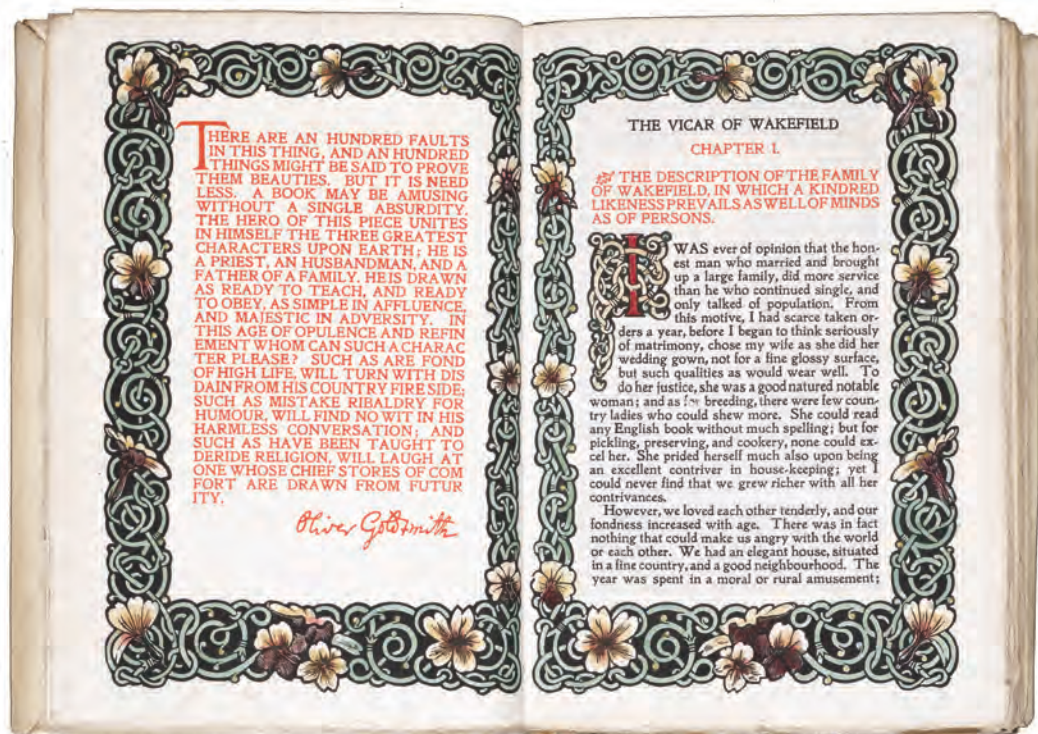 THERE ARE AN HUNDRED FAULTS
IN THIS THING, AND AN HUNDRED
THINGS MIGHT BE SAID TO PROVE
THEM BEAUTIES. BUT IT IS NEED
LESS. A BOOK MAY BE AMUSING
WITHOUT A SINGLE ABSURDITY.
THE HERO OF THIS PIECE UNITES
IN HIMSELF THE THREE GREATEST
CHARACTERS UPON EARTH; HE IS
A PRIEST, AN HUSBANDMAN, AND A
FATHER OF A FAMILY. HE IS DRAWN
AS READY TO TEACH, AND READY
TO OBEY, AS SIMPLE IN AFFLUENCE,
AND MAJESTIC IN ADVERSITY. IN
THIS AGE OF OPULENCE AND REFIN
EMENT WHOM CAN SUCH A CHARAC
TER PLEASE? SUCH AS ARE FOND
OF HIGH LIFE, WILL TURN WITH DIS
DAIN FROM HIS COUNTRY FIRE SIDE;
SUCH AS MISTAKE RIBALDRY FOR
HUMOUR, WILL FIND NO WIT IN HIS
HARMLESS CONVERSATION; AND
SUCH AS HAVE BEEN TAUGHT TO
DERIDE RELIGION, WILL LAUGH AT
ONE WHOSE CHIEF STORES OF COM
FORT ARE DRAWN FROM FUTUR
ITY.
Oliver Goldsmith
THE VICAR OF WAKEFIELD
CHAPTER I.
THE DESCRIPTION OF THE FAMILY
OF WAKEFIELD, IN WHICH A KINDRED
LIKENESS PREVAILS AS WELL OF MINDS
AS OF PERSONS.
I WAS ever of opinion that the hon-
est man who married and brought
up a large family, did more service
than he who continued single, and
only talked of population. From
this motive, I had scarce taken or-
ders a year, before I began to think seriously
of matrimony, chose my wife as she did her
wedding gown, not for a fine glossy surface,
but such qualities as would wear well. To
do her justice, she was a good natured notable
woman; and as for breeding, there were few coun-
try ladies who could shew more. She could read
any English book without much spelling; but for
pickling, preserving, and cookery, none could ex-
cel her. She prided herself much also upon being
an excellent contriver in house-keeping; yet I
could never find that we grew richer with all her
contrivances.
However, we loved each other tenderly, and our
fondness increased with age. There was in fact
nothing that could make us angry with the world
or each other. We had an elegant house, situated
in a fine country, and a good neighbourhood. The
year was spent in a moral or rural amusement;